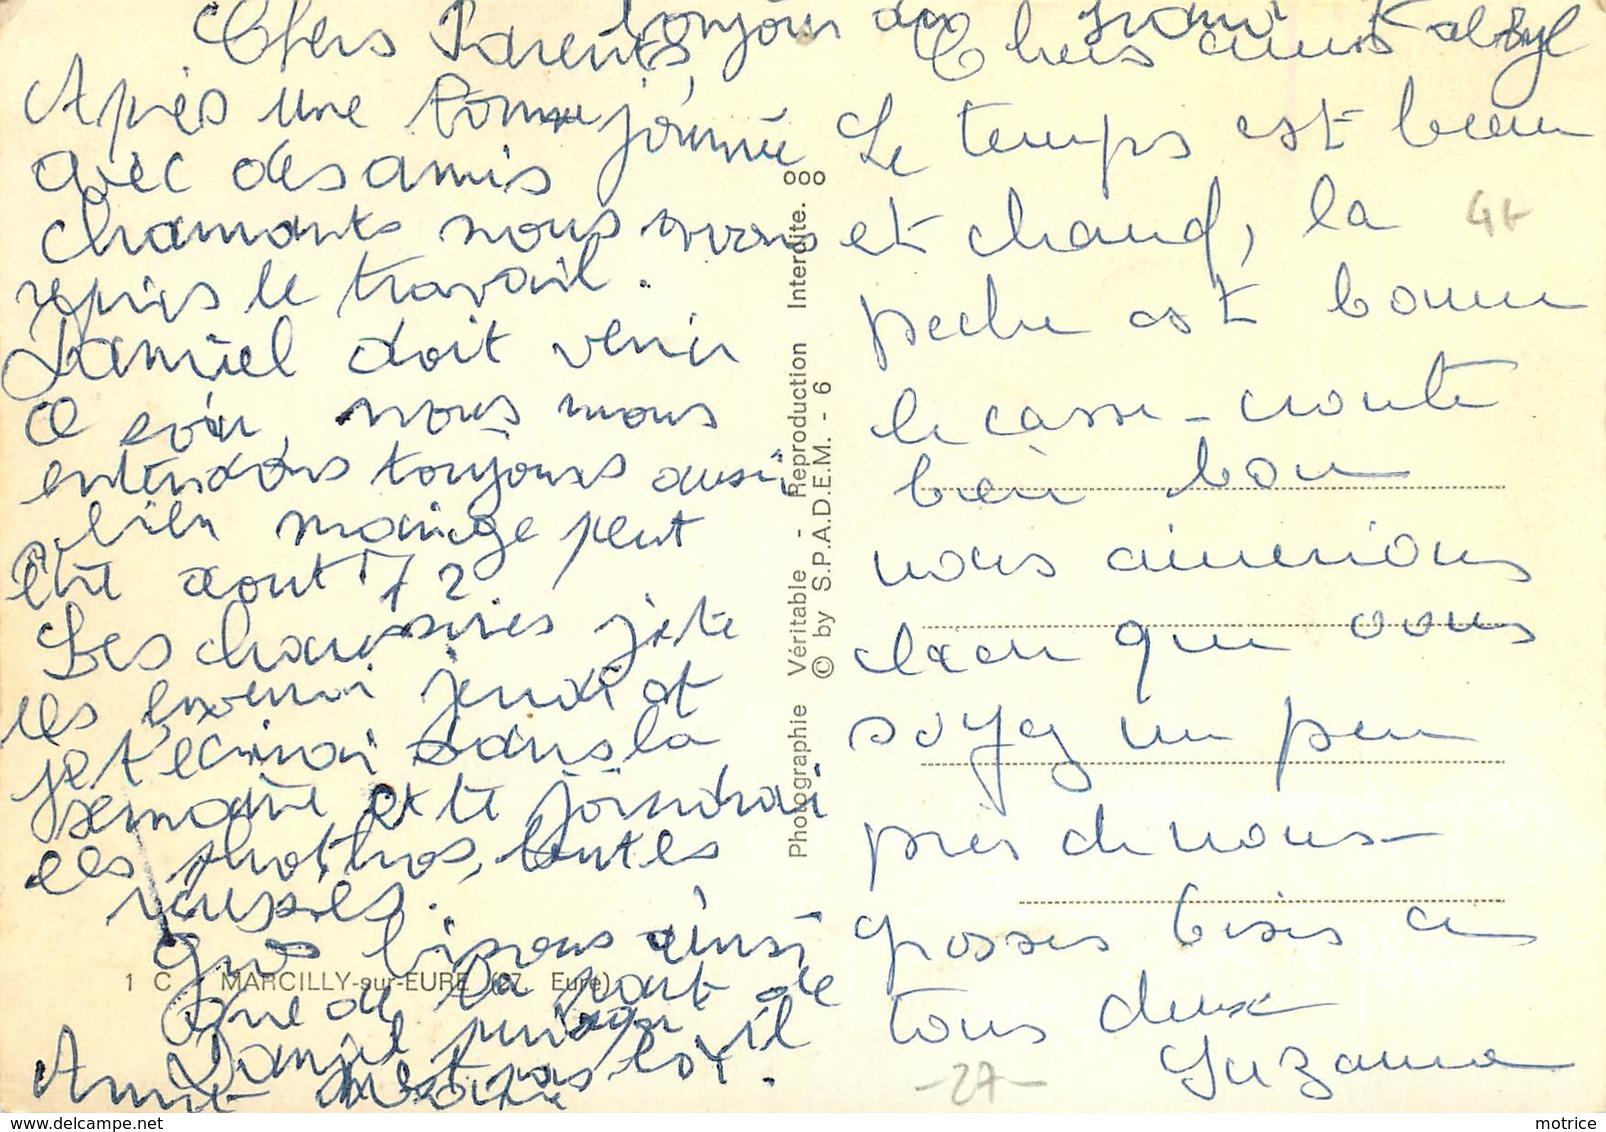 Chers Parents,
Après une bonne journée
avec des amis
charmants nous avons
repris le travail.
Daniel doit venir
ce soir, nous nous
entendons toujours aussi
bien mariage peut
être aout 72
Les chaussures jete
les jeudi et
jet ecrirai dans la
semaine et te joindrai
les photos, toutes
Gros bisous ainsi
que de la part de
Daniel
Amit
bonjour aux Kalbyl
Chers amis
Le temps est beau
et chaud, la
peche est bonne
le casse-croute
bien bon
nous aimerions
bien que vous
soyez un peu
près de nous -
grosses bises a
tous deux
Suzanne
1 C MARCILLY-sur-EURE (27. Eure)
Photographie Véritable - Reproduction Interdite. ooo
© by S.P.A.D.E.M. - 6
G+
-27-
www.delcampe.net
motrice